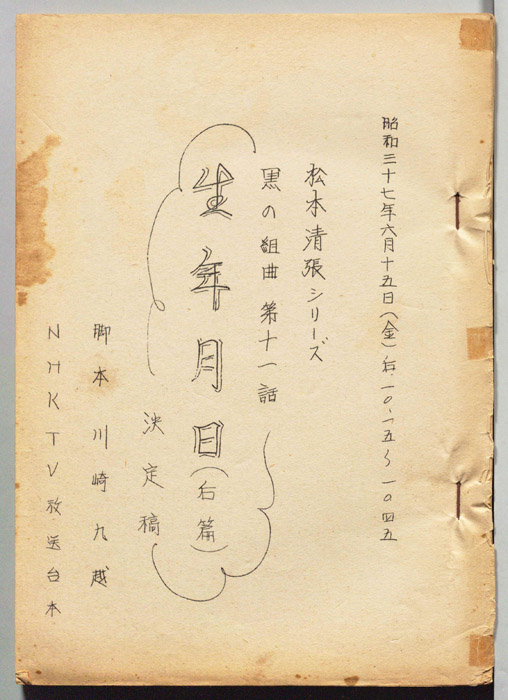 昭和三十七年六月十五日(金)后.一〇.一五〜一〇四五
松本清張シリーズ
黒の組曲 第十一話
生年月日(后篇)
決定稿
脚本 川崎九越
NHKTV放送台本